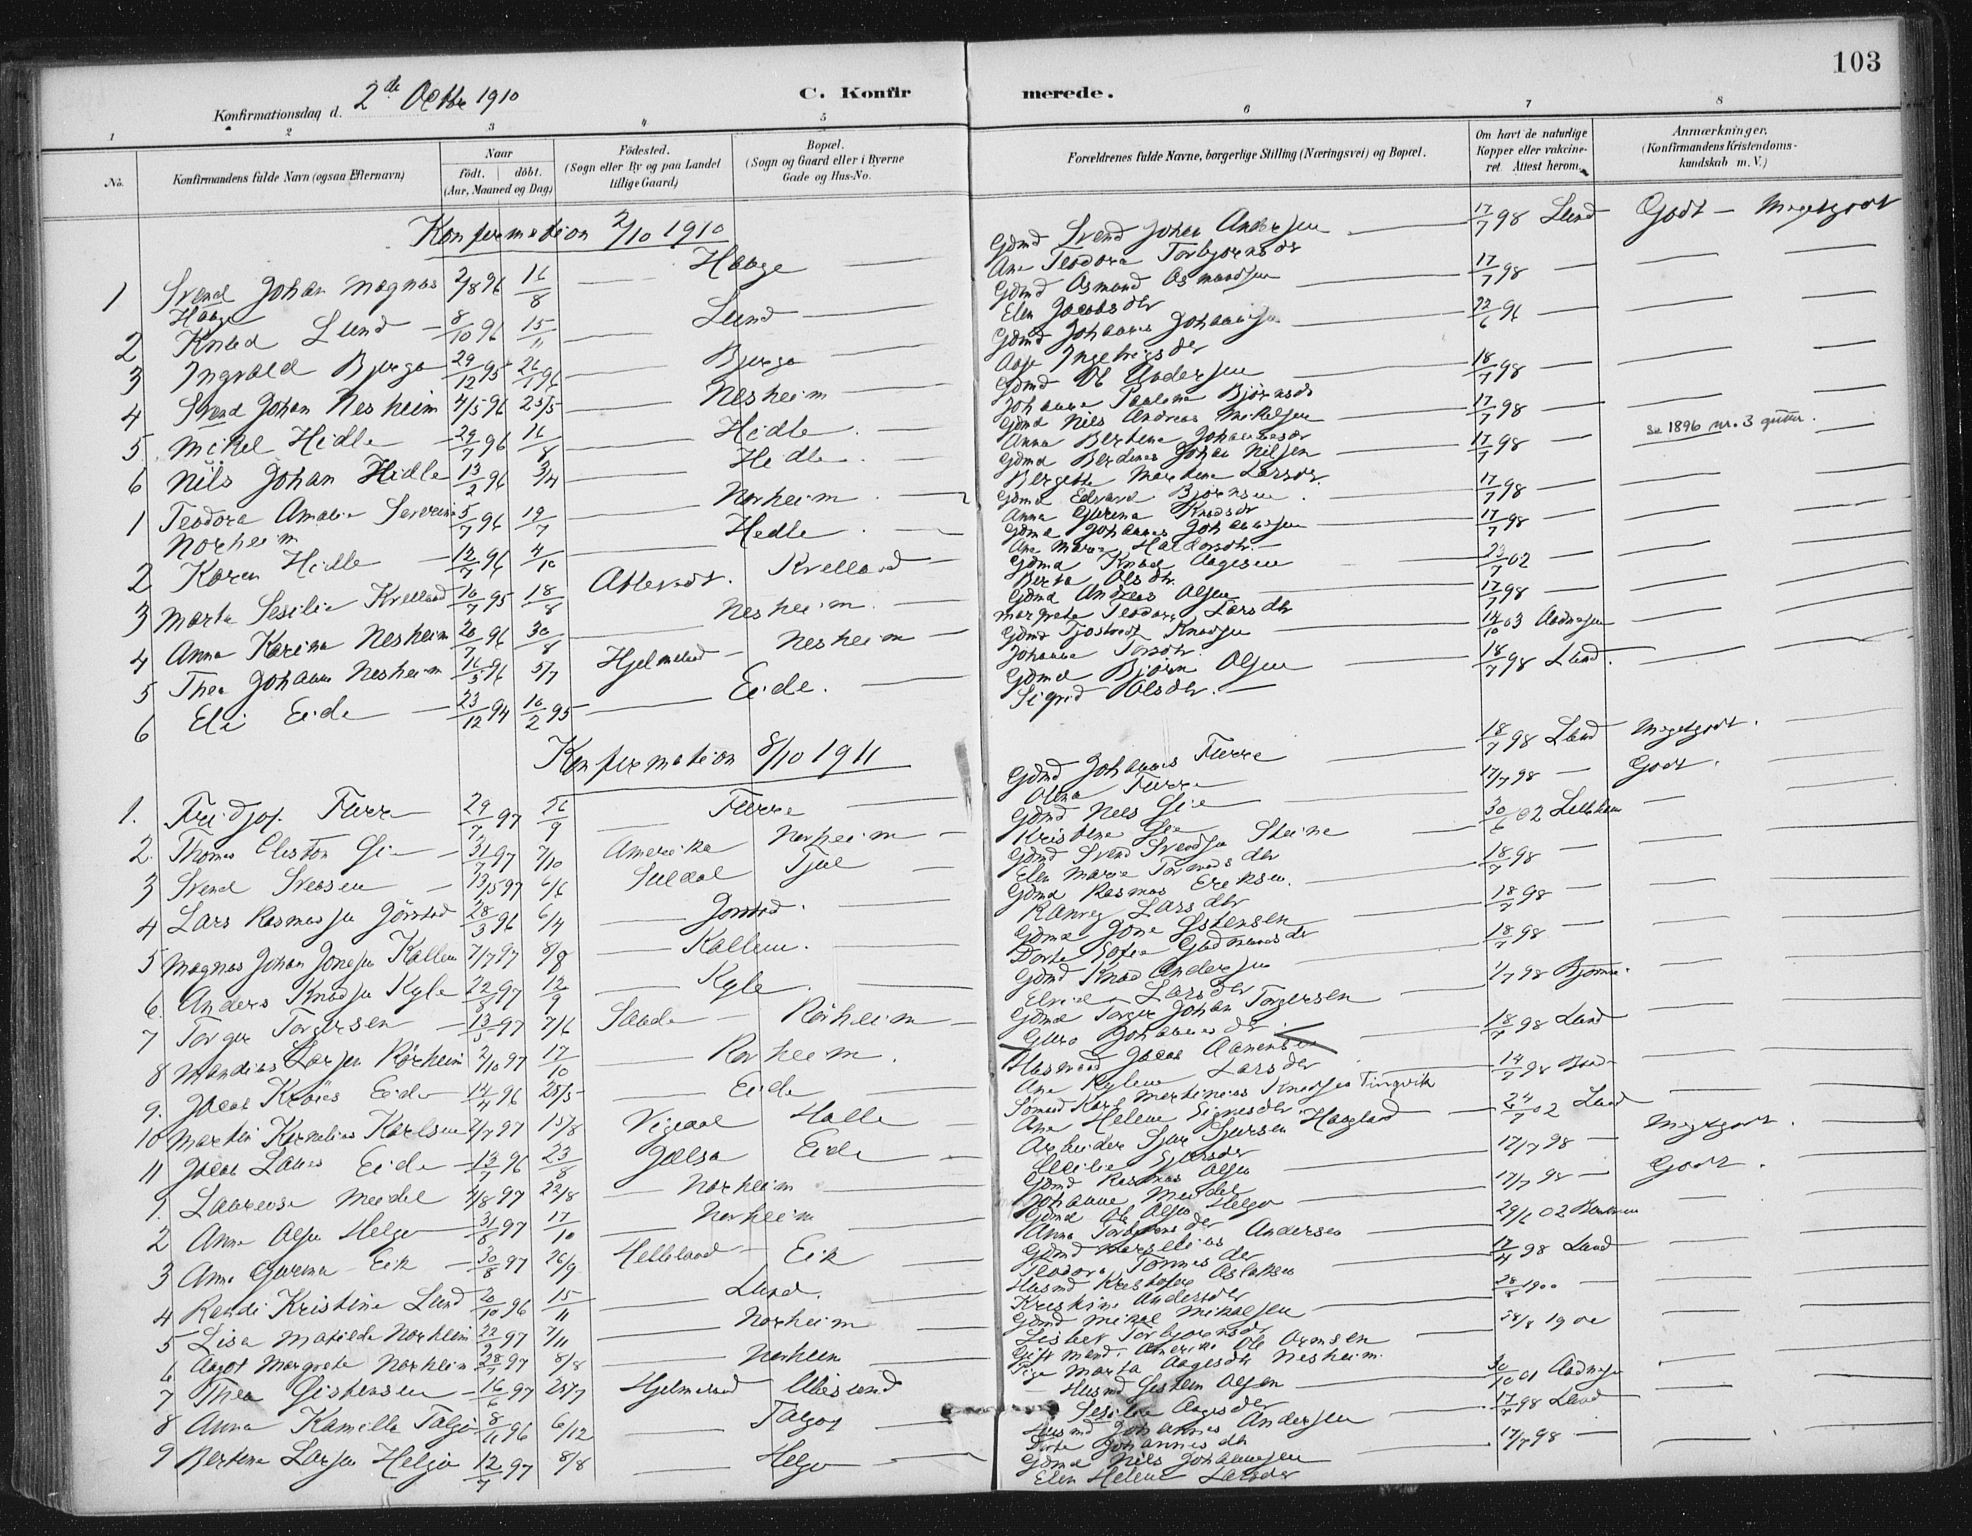 103
Konfirmationsdag d. 2de Octbr 1910
C. Konfirmerede.
1 2 3 4 5 6 7 8
No.
Konfirmandens fulde Navn (ogsaa Efternavn)
Naar
födt. döbt.
(Aar, Maaned og Dag)
Födested.
(Sogn eller By og paa Landet
tillige Gaard)
Bopæl.
(Sogn og Gaard eller i Byerne
Gade og Hus-No.
Forældrenes fulde Navne, borgerlige Stilling (Næringsvei) og Bopæl.
Om havt de naturlige
Kopper eller vakcine-
ret. Attest herom.
Anmærkninger.
(Konfirmandens Kristendoms-
kundskab m. V.)
Konfirmation 2/10 1910
1 Svend Johan Magnus Hauge 2/8 96 16/8 — Hauge — Gdmd Svend Johan Andersen — 17/7 98 Lund Godt — Megetgodt
Ane Teodora Torbjørnsdr
2 Knud Lund — 8/10 96 15/11 — Lund — Gdmd Osmund Osmundsen 17/7 98 —
Elen Jacobsdr
3 Ingvald Bjerga 29/12 95 26/1 96 — Bjerga Gdmd Johannes Johannsen 22/6 96 —
Aase Ingebrigsdr
4 Svend Johan Nesheim 4/5 96 25/5 — Nesheim — Gdmd Ol Andersen — 18/7 98 —
Johanna Paulina Bjørnsdr
5 Mikel Hidle — 29/7 96 16/8 — Hidle — Gdmd Nils Andreas Mikelsen 17/7 98 —
Anna Bertine Johannesdr
6 Nils Johan Hidle 13/2 96 3/4 — Hidle — Gdmd Berdines Johan Nilsen — 17/7 98 — se 1896 nr. 3 gutter.
Bergitte Martine Larsdr.
1 Teodora Amalie Severine Norheim 5/7 96 19/7 — Norheim — Gdmd Edvard Bjørnsen 17/7 98 —
Anna Gurina Knudsdr
2 Karen Hidle — 12/7 96 4/10 — Hidle — Gdmd Johannes Johannesen 17/7 98 —
Ane Marie Haldorsdtr. —
3 Marta Sesilie Kvelland 16/7 95 18/8 Kvelland — Gdmd Knud Aagesen 23/7 02 —
Berta Olsdtr.
4 Anna Karina Nesheim 20/7 96 30/8 — Nesheim. — Gdmd Andreas Olsen 17/7 98 —
Margrete Teodora Larsdtr
5 Thea Johanna Nesheim 16/5 96 5/7 Hjelmeland — Nesheim — Gdmd Tjostvedt Knudsen — 14/10 03 Aadnesen
Johanna
6 Eli Eide — 23/12 94 10/2 95 — Eide. — Gdmd Bjørn Olsen — 18/7 98 Lund.
Sigrid Olsdtr. —
Konfirmation 8/10 1911
1. Fridjof Furre 29/7 97 26/9 — Furre Gdmd Johannes Furre — 18/7 98 Lund Megetgodt.
Olina Furre
2. Thomas Cliston Gie — 31/7 97 7/10 Amerika Norheim — Gdmd Nels Gie — 17/7 98 — Godt.
Kristine Gie
3 Svend Svensen — 13/5 97 6/6 Suldal Tjul — Gdmd Svend Svendsen Steine — 30/6 02
Elen Marie Tormodsdtr
4 Lars Rasmussen Jørstad 28/3 96 6/4 — Jørstad. — Gdmd Rasmus Eriksen. — 18/7 98 —
Ranveg Larsdtr
5 Magnus Johan Jonesen Kallem 7/7 97 8/8 — Kallem. — Gdmd Jone Østensen — 18/7 98 —
Dorte Sofie Gudmundsdr
6. Anders Knudsen Kyle 22/8 97 12/9 — Kyle. — Gdmd Knud Andersen — 18/7 98 —
Larsdtr
7 Torger Torgersen — 13/5 97 7/6 Sauda — Rörheim — Gdmd Torger Johan Torgersen — 1/7 98
Guro Johannesdtr
8 Mandius Larsen Rörheim 2/10 97 17/10 — Rörheim. Husmand Jacob Aanensen 18/7 98 Lund
Ane Kyllene Larsdtr
9. Jacob Eide 14/4 96 25/5 — Eide — Sømand Karl Martinius Knudsen Tingvik 14/7 98
Ane Helene
10 Martin Kornelius Karlsen 2/7 97 15/8 Vigedal Halle — Arbeider Sjur Sjursen Haugland — 24/7 02 Lund
11 Jacob Eide — 12/7 96 23/8 Jelsa Eide — Gdmd Rasmus Olsen 17/7 98 — Megetgodt.
1. Laurense Meidel 4/8 97 22/8 — Norheim — Johanne Meidel 17/7 98 — Godt.
2 Anna Olsen Helgø — 31/8 97 17/10 — Norheim Gdmd Ol Olsen Helgø — 29/6 02
Anna Torbjørnsdr
3 Anna Gurina Eik — 30/8 97 26/9 Helleland — Eik — Gdmd Andersen 17/4 98 Lund
Teodora Tønnesdtr
4 Randi Kristine Lund 20/10 96 15/11 — Lund. Husmd Kristofer Aslaksen 28/8 1900 —
Kristine Andersdr
5 Lisa Matilda Norheim 22/9 97 7/11 — Norheim — Gdmd Mikal Mikalsen — 28/8 1900
Lisbet Torbjørnsdr
6 Aagot Margrete Norheim 28/7 97 8/8 — Norheim Gift mand i Amerika Ole Ormsen —
Pige Marta Aagesdtr Nesheim.
7 Thea Gistensen — 16/6 97 25/7 Hjelmeland — Husmd Gisten Olsen — 30/10 01 Aadnesen
Sesilie Aagesdtr
8 Anna Kamilla Talgø 8/11 96 6/12 — Talgøy Husmd Johannes Andersen — 17/7 98 Lund
Dorte Johannesdtr
9 Bertine Larsen Helgø 12/7 97 8/8 — Helgø — Gdmd Nils Johannesen 17/7 98 —
Elen Helene Larsdr